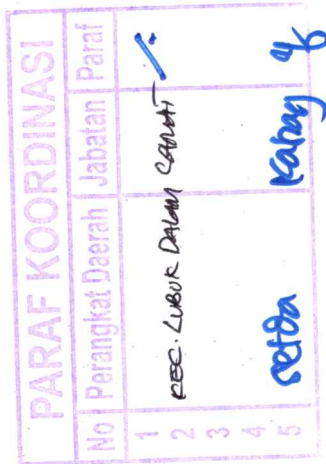 PARAF KOORDINASI
No Perangkat Daerah Jabatan Paraf
1
2 KEC. LUBUK DALAM CAMAT
3
4
5 Setda Kabag